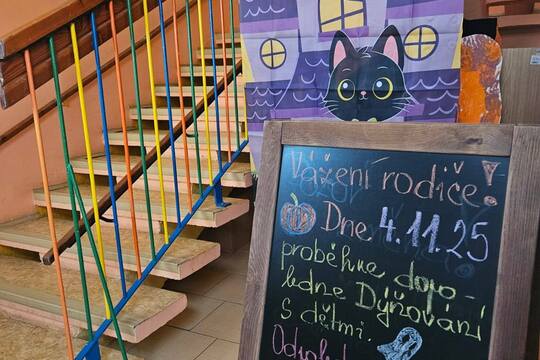 Vážení rodiče!
Dne 4.11.25
proběhne dopo-
ledne Dýňování
S dětmi.